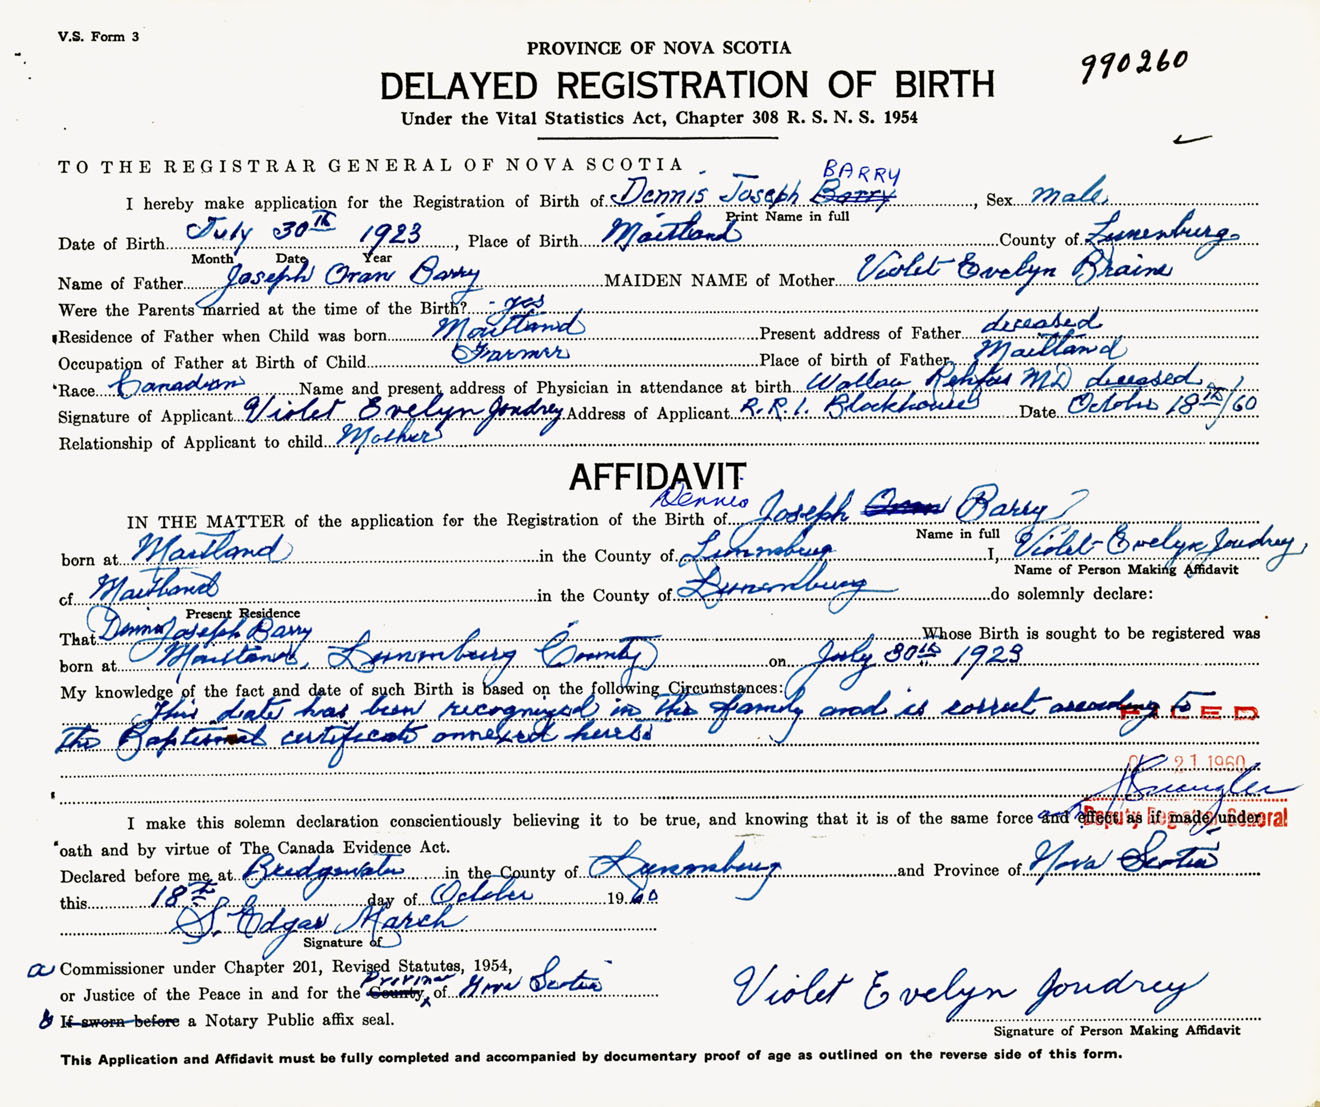 V.S. Form 3
PROVINCE OF NOVA SCOTIA
990260
DELAYED REGISTRATION OF BIRTH
Under the Vital Statistics Act, Chapter 308 R. S. N. S. 1954
TO THE REGISTRAR GENERAL OF NOVA SCOTIA
BARRY
I hereby make application for the Registration of Birth of Dennis Joseph Barry, Sex male
Print Name in full
Date of Birth July 30th 1923, Place of Birth Maitland County of Lunenburg
Month Date Year
Name of Father Joseph Oran Barry MAIDEN NAME of Mother Violet Evelyn Braine
Were the Parents married at the time of the Birth? yes
Residence of Father when Child was born Maitland Present address of Father deceased
Occupation of Father at Birth of Child Farmer Place of birth of Father Maitland
Race Canadian Name and present address of Physician in attendance at birth MD deceased
Signature of Applicant Violet Evelyn Joudrey Address of Applicant R.R.1. Blockhouse Date October 18th/60
Relationship of Applicant to child Mother
AFFIDAVIT
Dennis
IN THE MATTER of the application for the Registration of the Birth of Joseph Oran Barry
Name in full
born at Maitland in the County of Lunenburg I, Violet Evelyn Joudrey,
Name of Person Making Affidavit
of Maitland in the County of Lunenburg do solemnly declare:
Present Residence
That Dennis Joseph Barry Whose Birth is sought to be registered was
born at Maitland, Lunenburg County on July 30th 1923
My knowledge of the fact and date of such Birth is based on the following Circumstances:
This date has been recognized in the family and is correct according to
FILED
the Baptismal certificate annexed hereto
21 1960
I make this solemn declaration conscientiously believing it to be true, and knowing that it is of the same force and effect as if made under
Deputy Registrar General
oath and by virtue of The Canada Evidence Act.
Declared before me at Bridgewater in the County of Lunenburg and Province of Nova Scotia
this 18th day of October 1960
S. Edgar March
Signature of
a Commissioner under Chapter 201, Revised Statutes, 1954,
Province
or Justice of the Peace in and for the County of Nova Scotia
Violet Evelyn Joudrey
b If sworn before a Notary Public affix seal.
Signature of Person Making Affidavit
This Application and Affidavit must be fully completed and accompanied by documentary proof of age as outlined on the reverse side of this form.